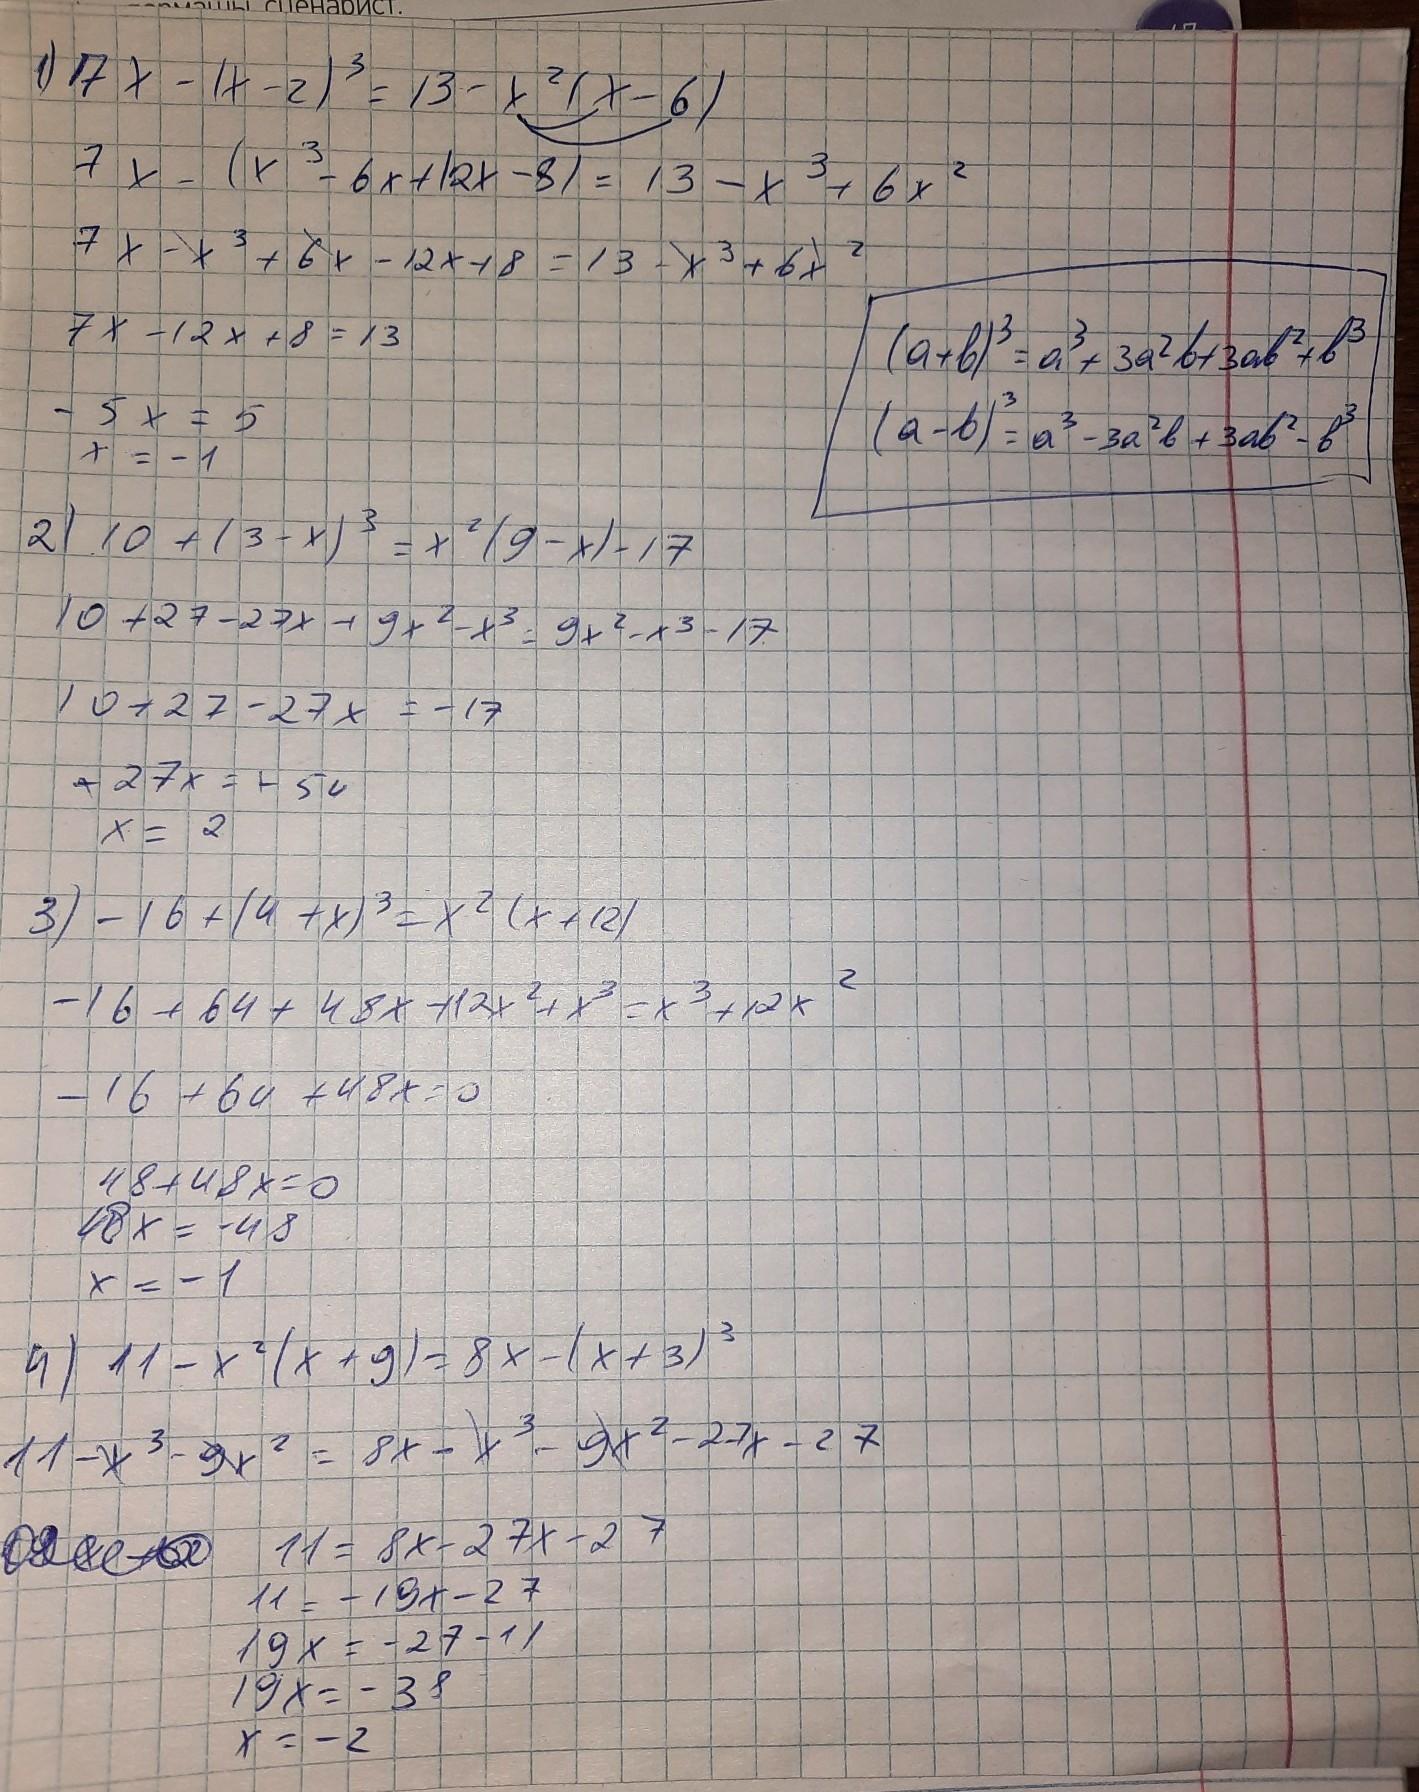 сценарист.
1) 7x - (x - 2)³ = 13 - x²(x - 6)
7x - (x³ - 6x + 12x - 8) = 13 - x³ + 6x²
7x - x³ + 6x - 12x + 8 = 13 - x³ + 6x²
7x - 12x + 8 = 13
(a+b)³ = a³ + 3a²b + 3ab² + b³
- 5x = 5
(a-b)³ = a³ - 3a²b + 3ab² - b³
x = -1
2) 10 + (3 - x)³ = x²(9 - x) - 17
10 + 27 - 27x + 9x² - x³ = 9x² - x³ - 17
10 + 27 - 27x = -17
- 27x = - 54
x = 2
3) - 16 + (4 + x)³ = x²(x + 12)
-16 + 64 + 48x + 12x² + x³ = x³ + 12x²
- 16 + 64 + 48x = 0
48 + 48x = 0
48x = -48
x = -1
4) 11 - x²(x + 9) = 8x - (x + 3)³
11 - x³ - 9x² = 8x - x³ - 9x² - 27x - 27
11 = 8x - 27x - 27
11 = -19x - 27
19x = -27 - 11
19x = -38
x = -2